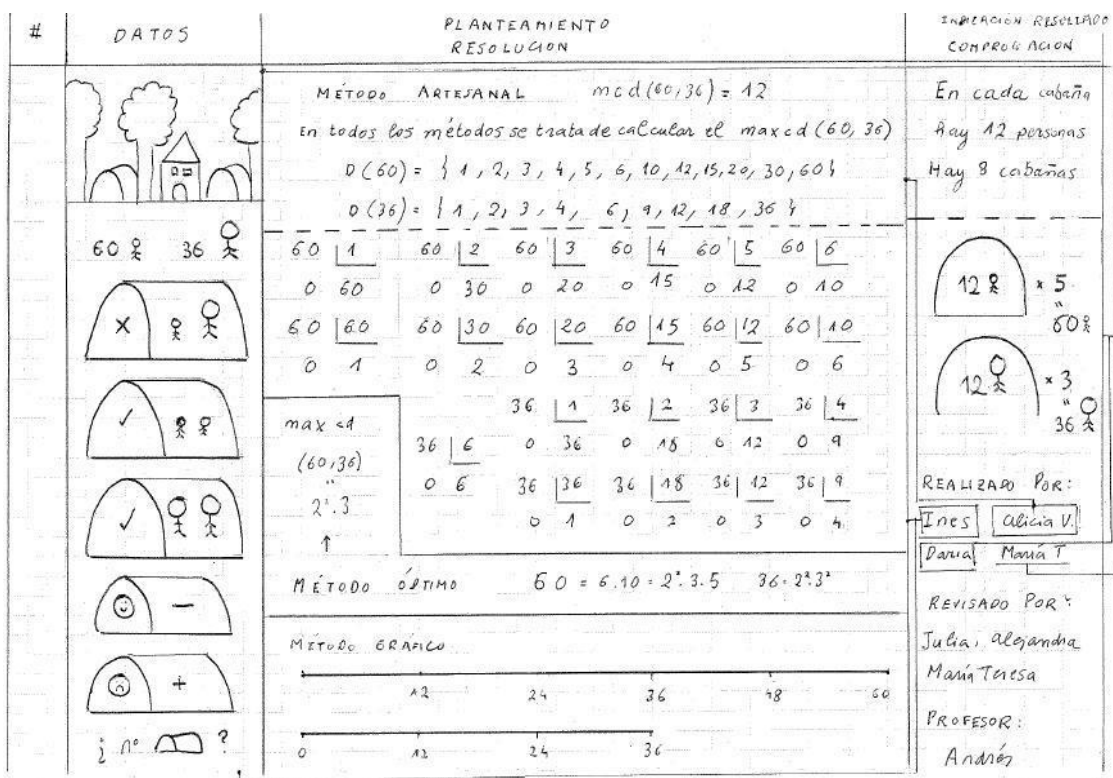 #
DATOS
PLANTEAMIENTO
RESOLUCION
INDICACIÓN RESULTADO
COMPROBACION
60 36
X
✓
✓
-
+
¿ nº ?
METODO ARTESANAL mcd(60,36) = 12
En todos los métodos se trata de calcular el maxcd (60, 36)
D(60) = { 1, 2, 3, 4, 5, 6, 10, 12, 15, 20, 30, 60 }
D(36) = { 1, 2, 3, 4, 6, 9, 12, 18, 36 }
60 |1 60 |2 60 |3 60 |4 60 |5 60 |6
0 60 0 30 0 20 0 15 0 12 0 10
60 |60 60 |30 60 |20 60 |15 60 |12 60 |10
0 1 0 2 0 3 0 4 0 5 0 6
36 |1 36 |2 36 |3 36 |4
36 |6 0 36 0 18 0 12 0 9
0 6 36 |36 36 |18 36 |12 36 |9
0 1 0 2 0 3 0 4
max cd
(60,36)
"
2².3
↑
MÉTODO ÓPTIMO 60 = 6.10 = 2².3.5 36 = 2².3²
MÉTODO GRÁFICO
12 24 36 48 60
0 12 24 36
En cada cabaña
hay 12 personas
Hay 8 cabañas
12 x 5
"
60
12 x 3
"
36
REALIZADO POR:
Ines Alicia V.
Daria María T
REVISADO POR:
Julia, Alejandra
María Teresa
PROFESOR:
Andrés